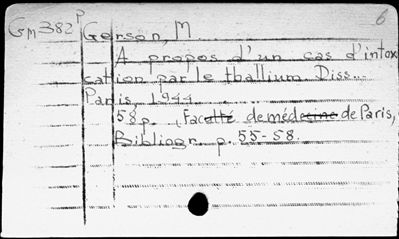 6
GM382 P Gerson, M
A propos d'un cas d'intox
cation par le thallium. Diss...
Paris, 1944
58 p. (Faculté de médecine de Paris,
Bibliogr. p. 55-58.